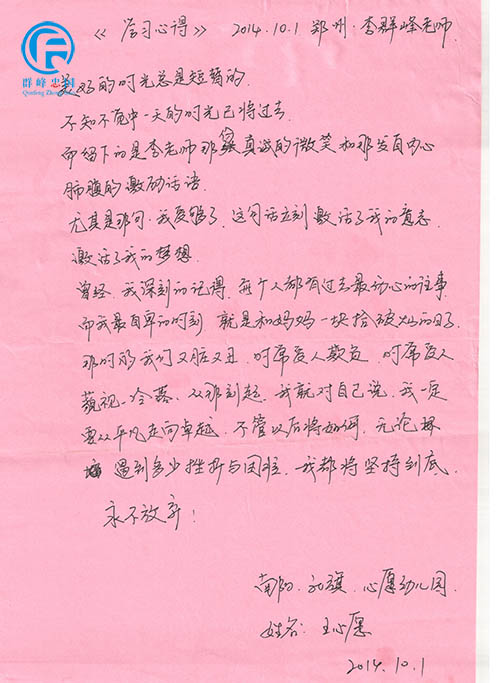 《学习心得》 2014.10.1 郑州·李群峰老师
群峰忠园
美好的时光总是短暂的.
不知不觉中一天的时光已将过去.
而留下的是李老师那真诚的微笑和那发自内心
肺腑的激励话语.
尤其是那句.我受够了.这句话立刻激活了我的意志.
激活了我的梦想.
曾经.我深刻的记得.每个人都有过去最伤心的往事.
而我最自卑的时刻.就是和妈妈一块拾破烂的日子.
那时的我们又脏又丑.时常受人欺负.时常受人
藐视.冷落.从那刻起.我就对自己说.我一定
要从平凡走向卓越.不管以后将如何.无论
遇到多少挫折与困难.我都将坚持到底.
永不放弃!
南阳.社旗.心愿幼儿园.
姓名:王心愿
2014.10.1